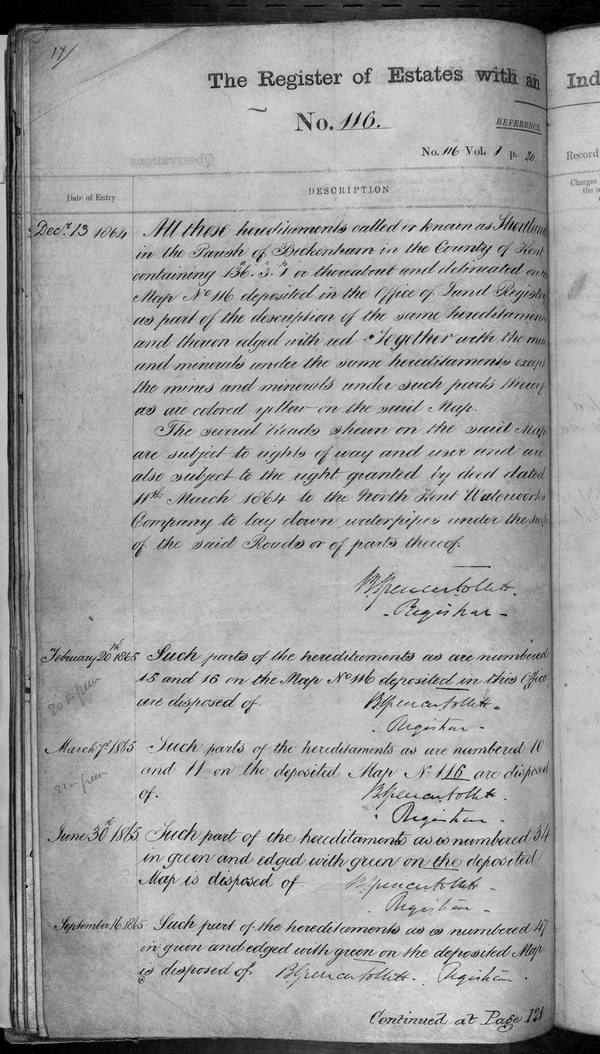 17/
The Register of Estates with an
No. 116.
REFERENCE
No. 116 Vol. 1 p. 20.
Observations
Date of Entry
DESCRIPTION
Decr. 13 1864 All those hereditaments called or known as Shortland
in the Parish of Beckenham in the County of Kent
containing 136a. 3r. 1p or thereabout and delineated on
Map No 116 deposited in the Office of Land Registry
as part of the description of the same hereditaments
and thereon edged with red Together with the
and minerals under the same hereditaments except
the mines and minerals under such parts thereof
as are colored yellow on the said Map.
The several Roads shewn on the said Map
are subject to rights of way and user and are
also subject to the right granted by deed dated
11th March 1864 to the North Kent Waterworks
Company to lay down waterpipes under the
of the said Roads or of parts thereof.
B Spencer Follett
Registrar
February 20th 1865 Such parts of the hereditaments as are numbered
15 and 16 on the Map No 116 deposited in this Office
are disposed of. B Spencer Follett
Registrar
March 7th 1865 Such parts of the hereditaments as are numbered 10
and 11 on the deposited Map No. 116 are disposed
of. B Spencer Follett.
Registrar
June 30th 1865 Such part of the hereditaments as is numbered 34
in green and edged with green on the deposited
Map is disposed of B Spencer Follett
Registrar
September 16. 1865 Such part of the hereditaments as is numbered 47
in green and edged with green on the deposited Map
is disposed of. B Spencer Follett. Registrar.
Continued at Page 121
Ind
Record
Charges
the